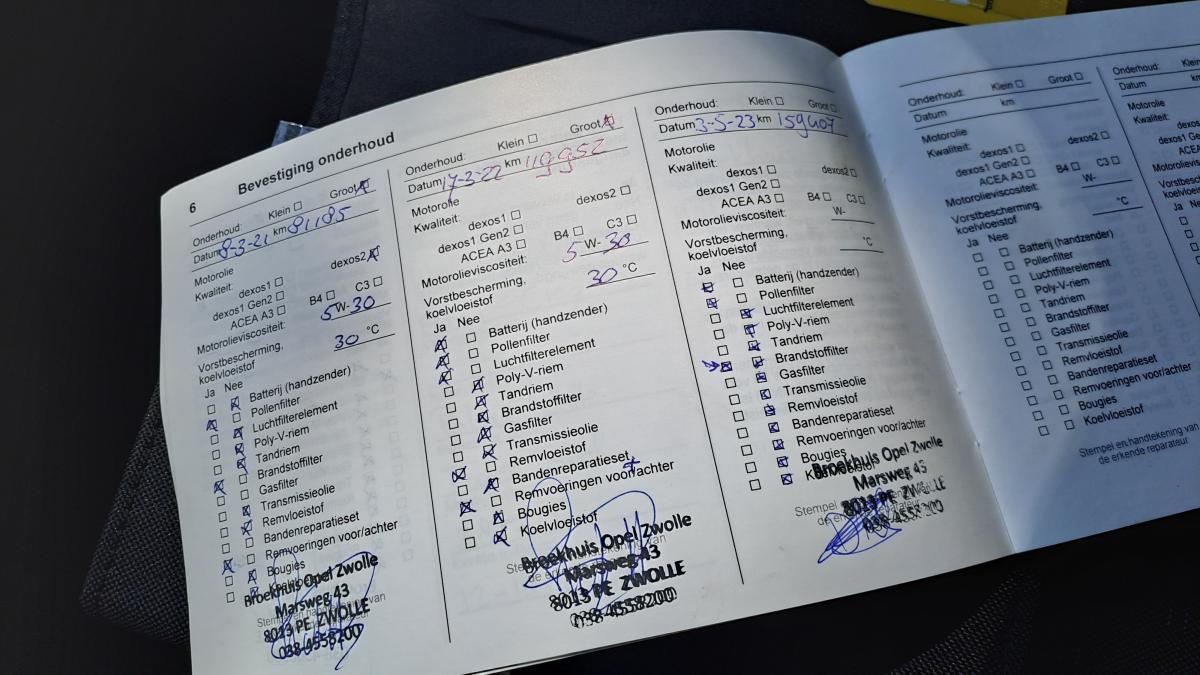 6
Bevestiging onderhoud
Onderhoud: Klein ☐ Groot ☒
Datum 8-3-21 km 81185
Motorolie
Kwaliteit: dexos2 ☒
dexos1 ☐
dexos1 Gen2 ☐
ACEA A3 ☐ B4 ☐ C3 ☐
Motorolieviscositeit: 5 W- 30
Vorstbescherming,
koelvloeistof 30 °C
Ja Nee
Batterij (handzender)
Pollenfilter
Luchtfilterelement
Poly-V-riem
Tandriem
Brandstoffilter
Gasfilter
Transmissieolie
Remvloeistof
Bandenreparatieset
Remvoeringen voor/achter
Bougies
Broekhuis Opel Zwolle
Marsweg 43
8013 PE ZWOLLE
038-4558200
Onderhoud: Klein ☐ Groot ☒
Datum 17-3-22 km 119952
Motorolie
Kwaliteit: dexos2 ☐
dexos1 ☐
dexos1 Gen2 ☐
ACEA A3 ☐ B4 ☐ C3 ☐
Motorolieviscositeit: 5 W- 30
Vorstbescherming,
koelvloeistof 30 °C
Ja Nee
Batterij (handzender)
Pollenfilter
Luchtfilterelement
Poly-V-riem
Tandriem
Brandstoffilter
Gasfilter
Transmissieolie
Remvloeistof
Bandenreparatieset
Remvoeringen voor/achter
Bougies
Koelvloeistof
Broekhuis Opel Zwolle
Marsweg 43
8013 PE ZWOLLE
038-4558200
Onderhoud: Klein ☐ Groot ☐
Datum 3-5-23 km 159407
Motorolie
Kwaliteit: dexos2 ☐
dexos1 ☐
dexos1 Gen2 ☐
ACEA A3 ☐ B4 ☐ C3 ☐
Motorolieviscositeit: W-
Vorstbescherming,
koelvloeistof °C
Ja Nee
Batterij (handzender)
Pollenfilter
Luchtfilterelement
Poly-V-riem
Tandriem
Brandstoffilter
Gasfilter
Transmissieolie
Remvloeistof
Bandenreparatieset
Remvoeringen voor/achter
Bougies
Broekhuis Opel Zwolle
Marsweg 43
8013 PE ZWOLLE
038-4558200
Onderhoud: Klein ☐ Groot ☐
Datum km
Motorolie
Kwaliteit: dexos2 ☐
dexos1 ☐
dexos1 Gen2 ☐
ACEA A3 ☐ B4 ☐ C3 ☐
Motorolieviscositeit: W-
Vorstbescherming,
koelvloeistof °C
Ja Nee
Batterij (handzender)
Pollenfilter
Luchtfilterelement
Poly-V-riem
Tandriem
Brandstoffilter
Gasfilter
Transmissieolie
Remvloeistof
Bandenreparatieset
Remvoeringen voor/achter
Bougies
Koelvloeistof
Stempel en handtekening van
de erkende reparateur
Onderhoud: Klein
Datum km
Motorolie
Kwaliteit:
dexos1
dexos1 Gen2
Motorolieviscositeit
Vorstbescherming
koelvloeistof
Ja Nee